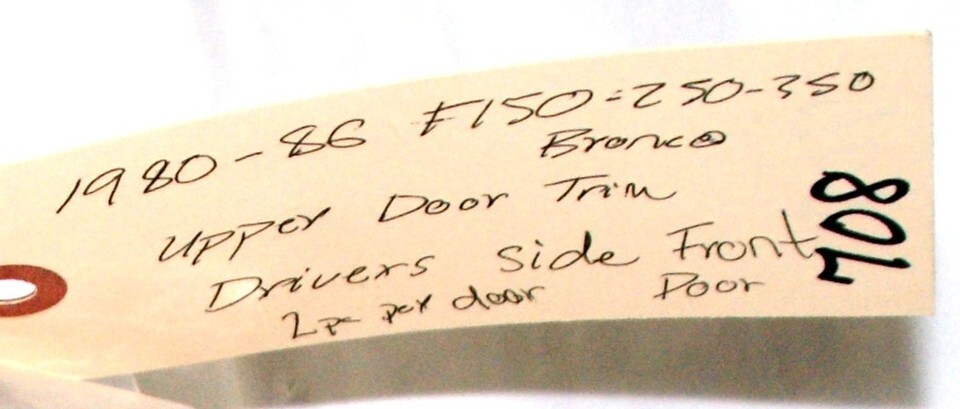 1980-86 F150-250-350
Bronco
Upper Door Trim
Drivers side Front
Door
2pc per door
708